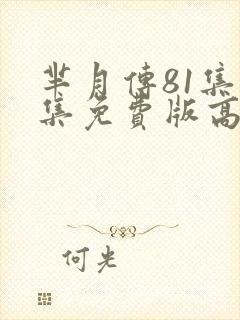 芈月傳81集
集免費版高
何光